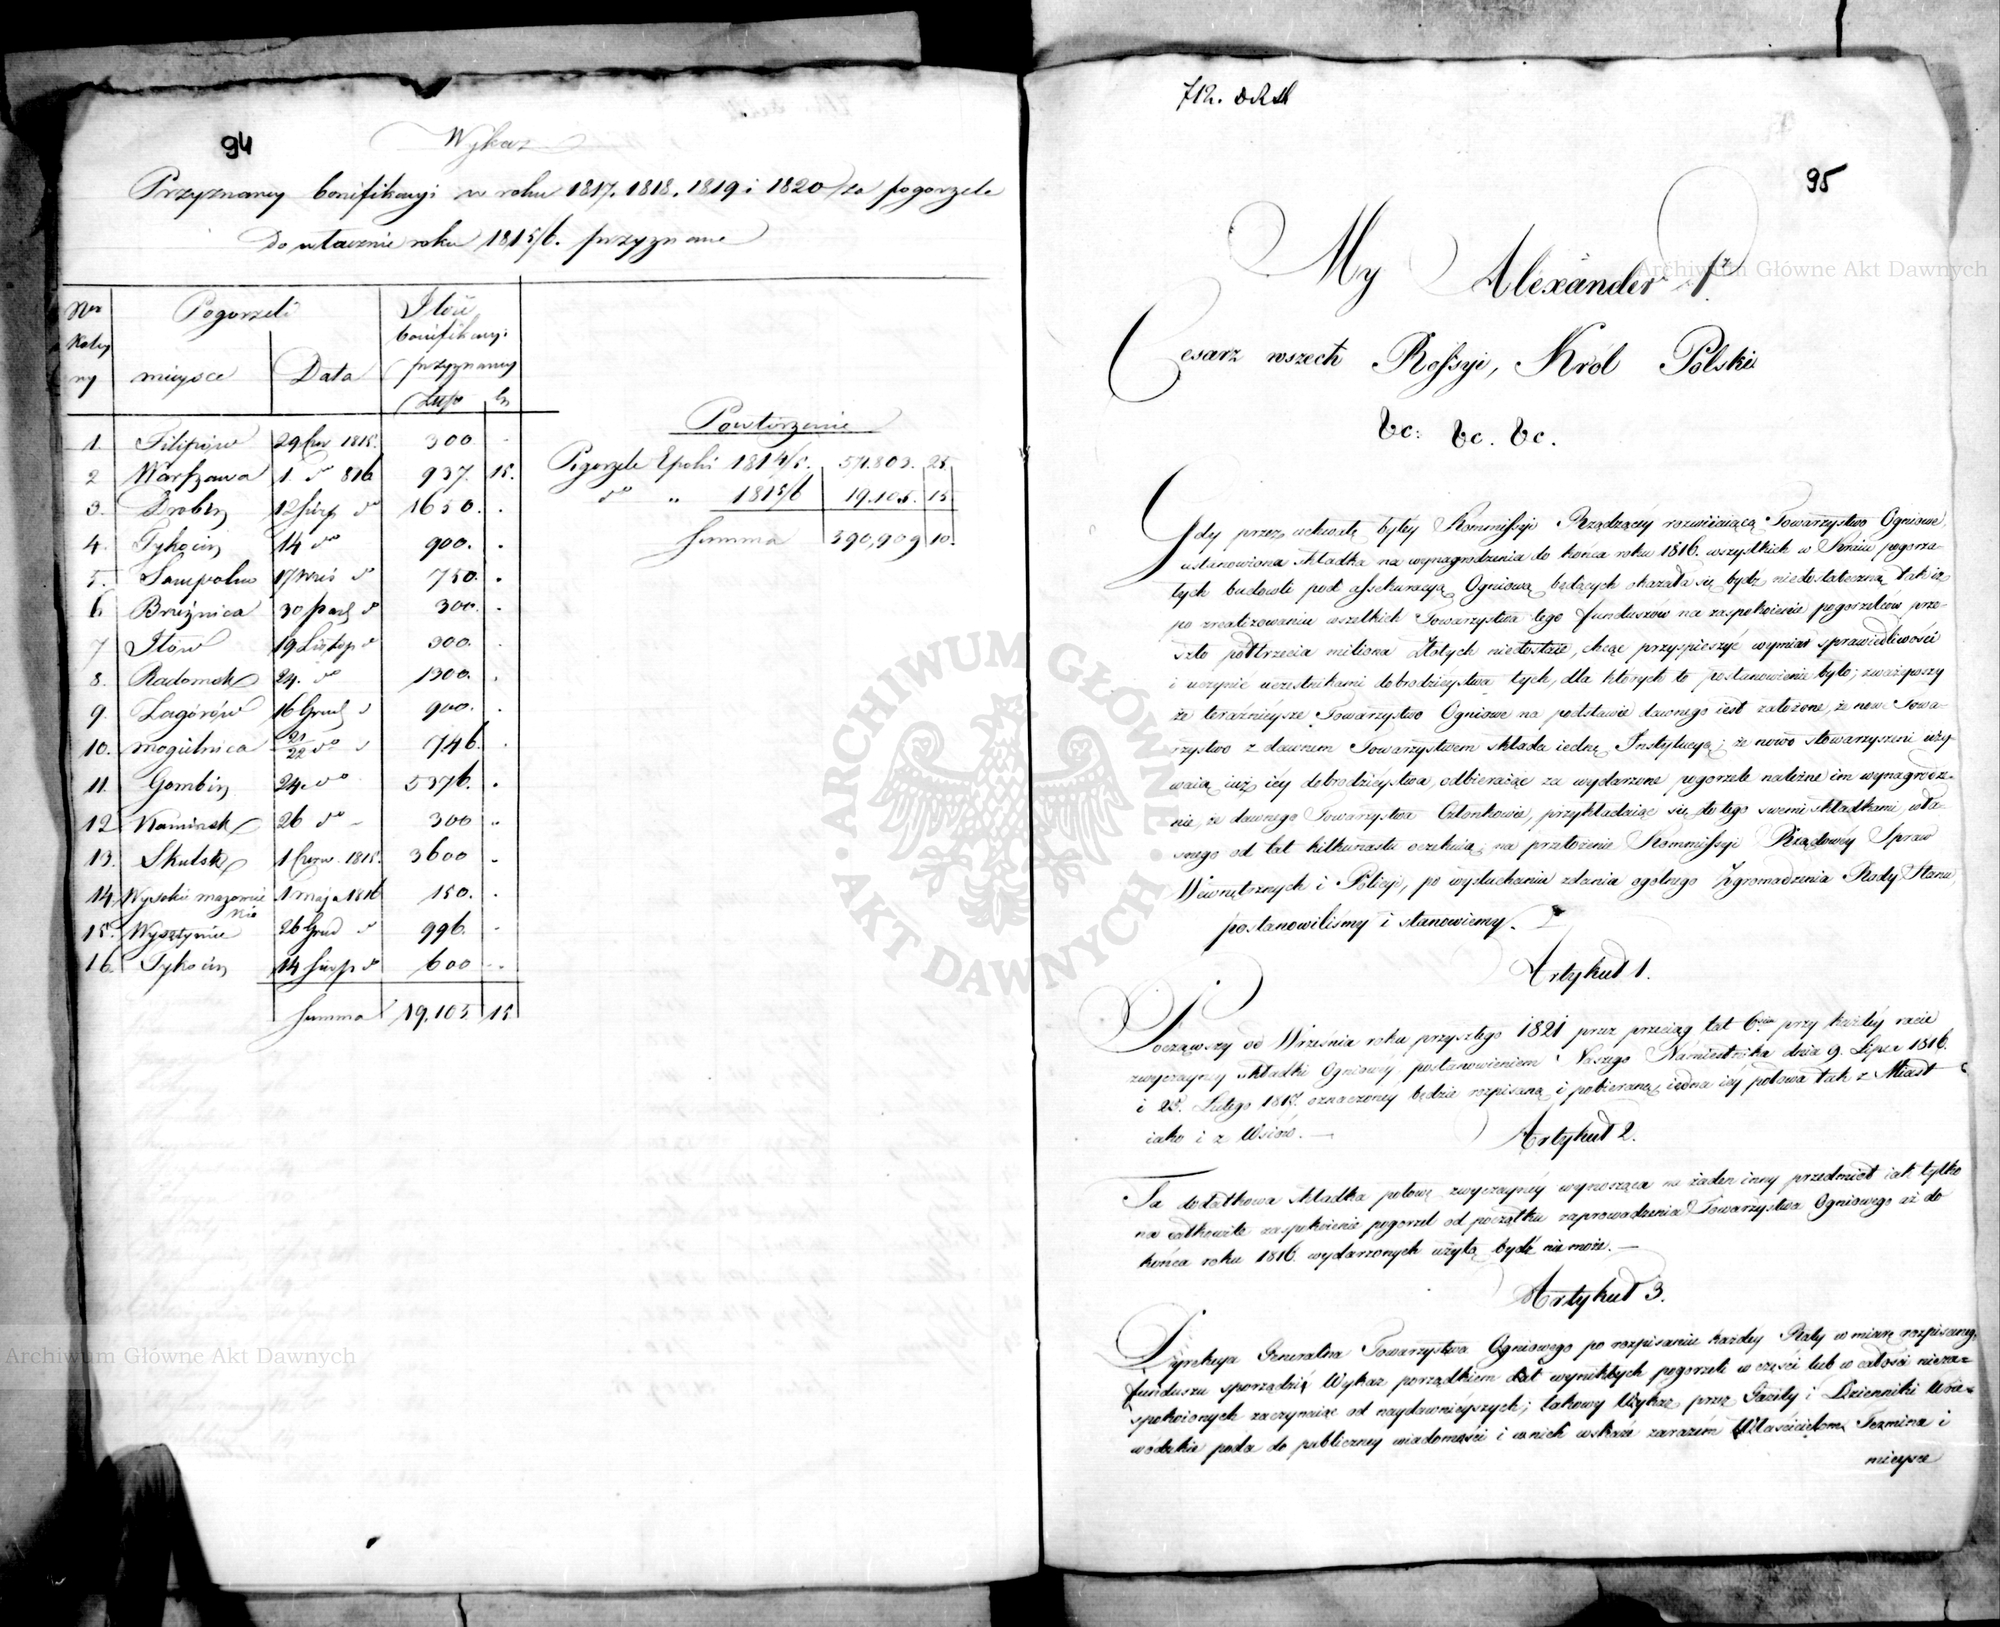 94
Wykaz
Przyznaney bonifikacyi w roku 1817. 1818. 1819 i 1820 za pogorzele
do utacznie roku 1815/6. przyznane
Nro kolejny Pogorzeli Ilość bonifikacyi przyznaney
miejsce Data Złłp gr
1. Filipów 29 Czer 1815. 300. -
2 Warszawa 1. do 816 937. 15.
3. Drobin 12 Sierp do 1650. .
4. Tykocin 14 do 900. .
5. Sompolno 17 Wrześ do 750. .
6. Brzeźnica 30 Paźd do 300. .
7 Iłów 19 Listop do 300. .
8. Radomsk 24. do 1300. .
9. Zagórów 16 Grud do 900. .
10. Mogielnica 21/22 do 746. .
11. Gombin 24. do 5376. .
12 Kamińsk 26 do - 300 ..
13. Skulsk 1 Czerw. 1815. 3600 .
14. Wysokie mazowieckie 1 maja 1816 150. .
15. Wysztyniec 26 Grud do 996. -
16. Tykocin 14 Sierp do 600 ..
Summa 19.105 15
Powtórzenie
Pogorzele Epoki 1814/5. 571.803. 25
do „ 1815/6 19.105. 15
Summa 590,909 10.
712. d R St
95
My Alexander Iszy
Cesarz wszech Rossyi, Król Polski
&c: &c. &c.
Gdy przez uchwałę byłey Kommissyi Rządzącey rozwiiaiącą Towarzystwo Ogniowe
ustanowiona składka na wynagrodzenia do końca roku 1816. wszystkich w Kraiu pogorza-
łych budowli pod assekuracyą Ogniową będących okazała się bydź niedostateczną, tak iż
po zrealizowaniu wszelkich Towarzystwa tego funduszów na zaspokoienie pogorzelców prze-
szło półtrzecia miliona Złotych niedostaie, chcąc przyspieszyć wymiar sprawiedliwości
i uczynić uczestnikami dobrodzieystwa tych, dla których to postanowienie było; zważywszy
że teraźnieysze Towarzystwo Ogniowe na podstawie dawnego iest założone, że nowe Towa-
rzystwo z dawnem Towarzystwem składa iednę Instytucyą; że nowo stowarzyszeni uży-
waią iuż iéy dobrodzieystwa, odbieraiąc za wydarzone pogorzele należne im wynagrodze-
nie, że dawnego Towarzystwa Członkowie, przykładaiąc się do tego swemi składkami, wła-
snego od lat kilkunastu oczekuią; na przełożenie Kommissyi Rządowéy Spraw
Wewnętrznych i Policyi, po wysłuchaniu zdania ogólnego Zgromadzenia Rady Stanu,
postanowiliśmy i stanowiemy.
Artykuł 1.
Począwszy od Września roku przyszłego 1821 przez przeciąg lat 6ciu przy każdéy racie
zwyczayney składki Ogniowéy postanowieniem Naszego Namiestnika dnia 9. Lipca 1816.
i 25. Lutego 1817. oznaczonéy będzie rozpisaną i pobieraną, iedna iéy połowa tak z Miast
iako i z Wsiów. —
Artykuł 2.
Ta dodatkowa składka połowę zwyczaynéy wynosząca na żaden inny przedmiot iak tylko
na całkowite zaspokoienie pogorzel od początku zaprowadzenia Towarzystwa Ogniowego aż do
końca roku 1816. wydarzonych użytą bydź nie może. —
Artykuł 3.
Dyrekcya Generalna Towarzystwa Ogniowego po rozpisaniu każdey Raty w miarę rozpisaneg.
funduszu sporządzi Wykaz porządkiem dat wynikłych pogorzeli w części lub w całości nieza-
spokoionych zaczynaiąc od naydawnieyszych; takowy Wykaz przez Gazety i Dzienniki Woie-
wódzkie poda do publiczney wiadomości i w nich wskaże zarazem Właścicielom Termina i
mieysce
Archiwum Główne Akt Dawnych
Archiwum Główne Akt Dawnych
ARCHIWUM GŁÓWNE AKT DAWNYCH